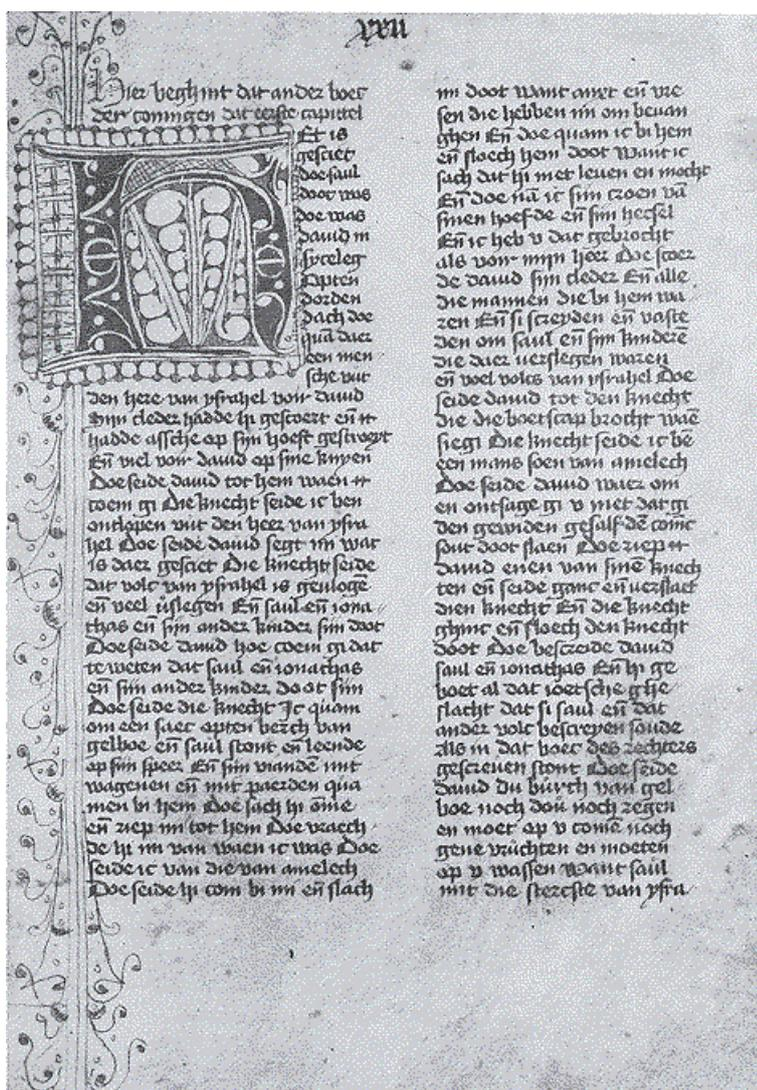 xxii
Hier beghint dat ander boec
der coningen dat eerste capittel
Et is
gesciet
doe saul
doot was
doe was
dauid in
syceleg
Opten
dorden
dach doe
quā daer
een men
sche vut
den here van ysrahel voir dauid
Sijn cleder hadde hi gescoert eñ it
hadde assche op sijn hoeft gestroeyt
Eñ viel voir dauid op sine knyen
Doe seide dauid tot hem waen
coem gi Die knecht seide ic ben
ontlopen vut den heer van ysra
hel Doe seide dauid segt mi wat
is daer gesciet Die knecht seide
dat volc van ysrahel is geulogē
eñ veel v̄slegen Eñ saul eñ iona
thas eñ sijn ander kinder sijn doot
Doe seide dauid hoe coem gi dat
te weten dat saul eñ ionathas
eñ sijn ander kinder doot sijn
Doe seide die knecht Ic quam
om een saec opten berch van
gelboe eñ saul stont eñ leende
op sijn speer Eñ sijn viandē mit
wagenen eñ mit paerden qua
men bi hem Doe sach hi omme
eñ riep mi tot hem Doe vraech
de hi mi van waen ic was Doe
seide ic van die van amelech
Doe seide hi com bi mi eñ slach
mi doot want anxt eñ vre
sen die hebben mi om beuan
ghen Eñ doe quam ic bi hem
eñ sloech hem doot Want ic
sach dat hi niet leuen en mocht
Eñ doe nā ic sijn croen vā
sinen hoefde eñ sijn hecsel
Eñ ic heb v dat gebrocht
als voir mijn heer Doe scoer
de dauid sijn cleder Eñ alle
die mannen die bi hem wa
ren Eñ si screyden eñ vaste
den om saul eñ sijn kinderē
die daer verslegen waren
eñ voel volcs van ysrahel Doe
seide dauid tot den knecht
die die boetscap brocht waē
siegi Die knecht seide ic bē
een mans soen van amelech
Doe seide dauid waer om
en ontsage gi v niet dat gi
den gewiden gesalfdē conīc
sout doot slaen Doe riep
dauid enen van sinē knech
ten eñ seide ganc eñ verslaet
dien knecht Eñ die knecht
ghinc eñ sloech den knecht
doot Doe bescreide dauid
saul eñ ionathas Eñ hi ge
boet al dat ioetsche ghe
slacht dat si saul eñ dat
ander volc bescreyen soude
als in dat boec des rechters
gescreuen stont Doe seide
dauid du burch van gel
boe noch dou noch regen
en moet op v comē noch
gene vruchten en moeten
op v wassen Want saul
mit die stercste van ysra